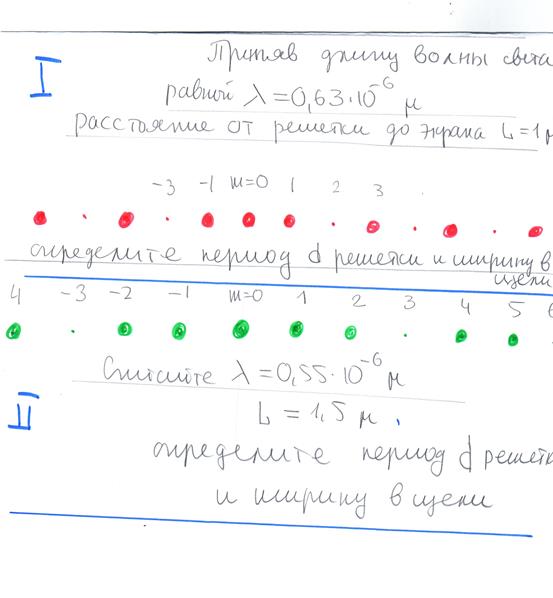 I
Приняв длину волны света
равной λ=0,63·10⁻⁶ м
расстояние от решетки до экрана L=1м
-3 -1 m=0 1 2 3
определите период d решетки и ширину в
щели
4 -3 -2 -1 m=0 1 2 3 4 5 6
Считайте λ=0,55·10⁻⁶ м
II
L = 1,5 м,
определите период d решетк
и ширину в щели